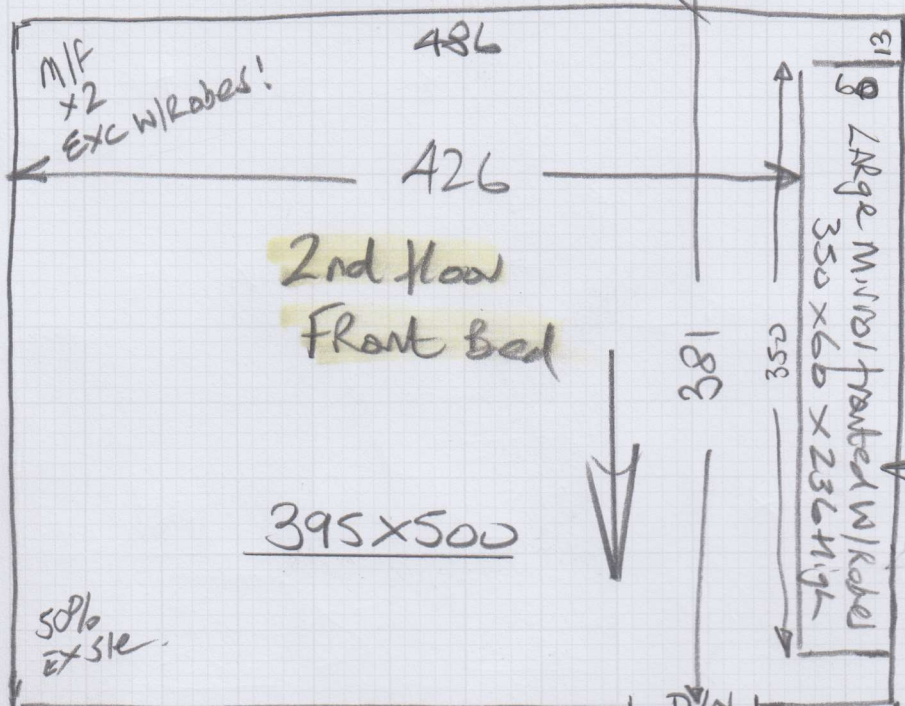 486
M/F
x2
EXC W/Robes!
426
2nd floor
FRont Bed
381
350
13
LARge Mirror fronted W/Robes
350 x 60 x 236 High
395x500
50%